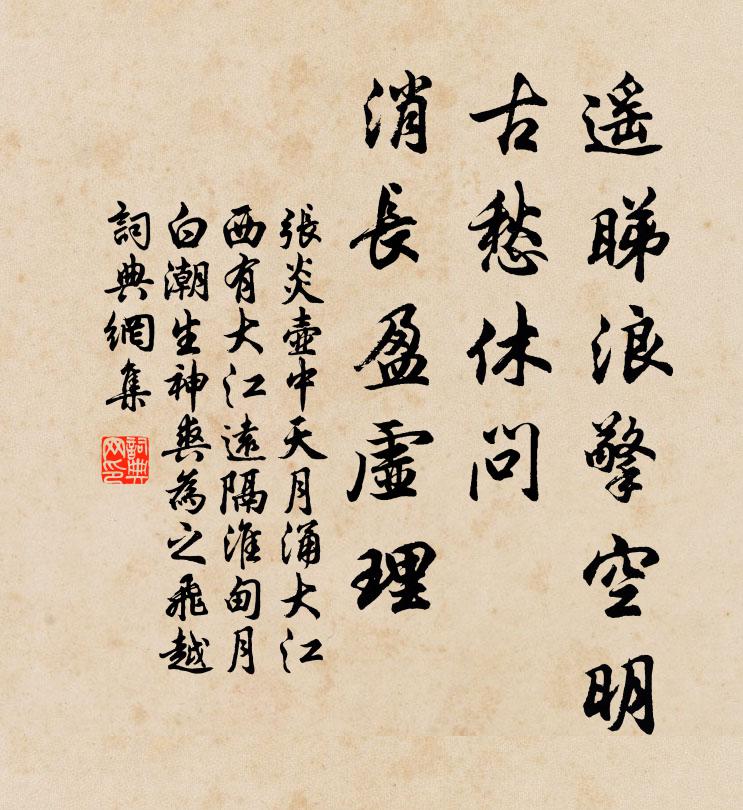 遥睇浪擎空明
古愁休問
消長盈虛理
張炎壺中天月涌大江
西有大江遠隔淮甸月
白潮生神爽為之飛越
詞典網集
詞典網印